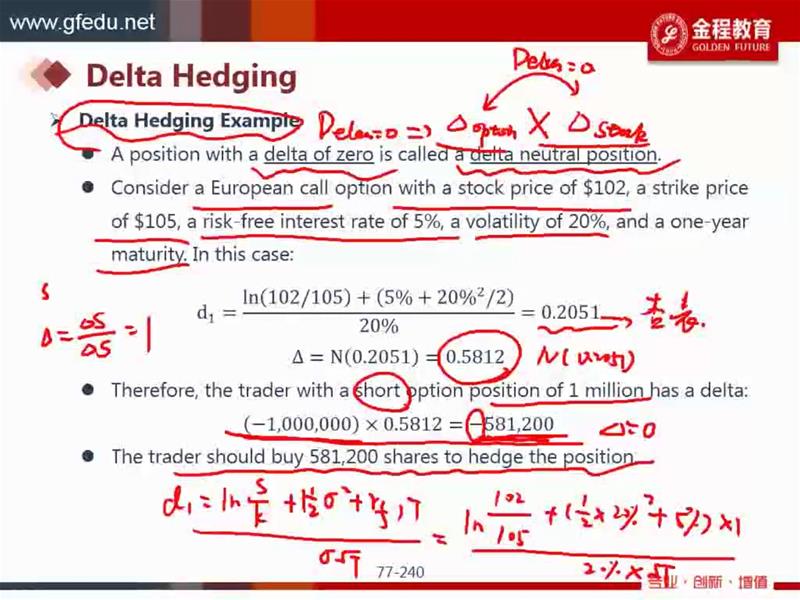 www.gfedu.net
金程教育
GOLDEN FUTURE
Delta Hedging
Delta=0
Delta Hedging Example
Delta=0 => Δoption X ΔStock
A position with a delta of zero is called a delta neutral position.
Consider a European call option with a stock price of $102, a strike price
of $105, a risk-free interest rate of 5%, a volatility of 20%, and a one-year
maturity. In this case:
S
Δ = ΔS/ΔS = 1
d₁ = (ln(102/105) + (5% + 20%²/2)) / 20% = 0.2051
Δ = N(0.2051) = 0.5812 N(0.2051)
Therefore, the trader with a short option position of 1 million has a delta:
(−1,000,000) × 0.5812 = −581,200 Δ=0
The trader should buy 581,200 shares to hedge the position.
d₁ = (ln S/K + (½σ² + rf)T) / σ√T = (ln 102/105 + (½ × 20%² + 5%) × 1) / 20% × √T
77-240
专业·创新·增值